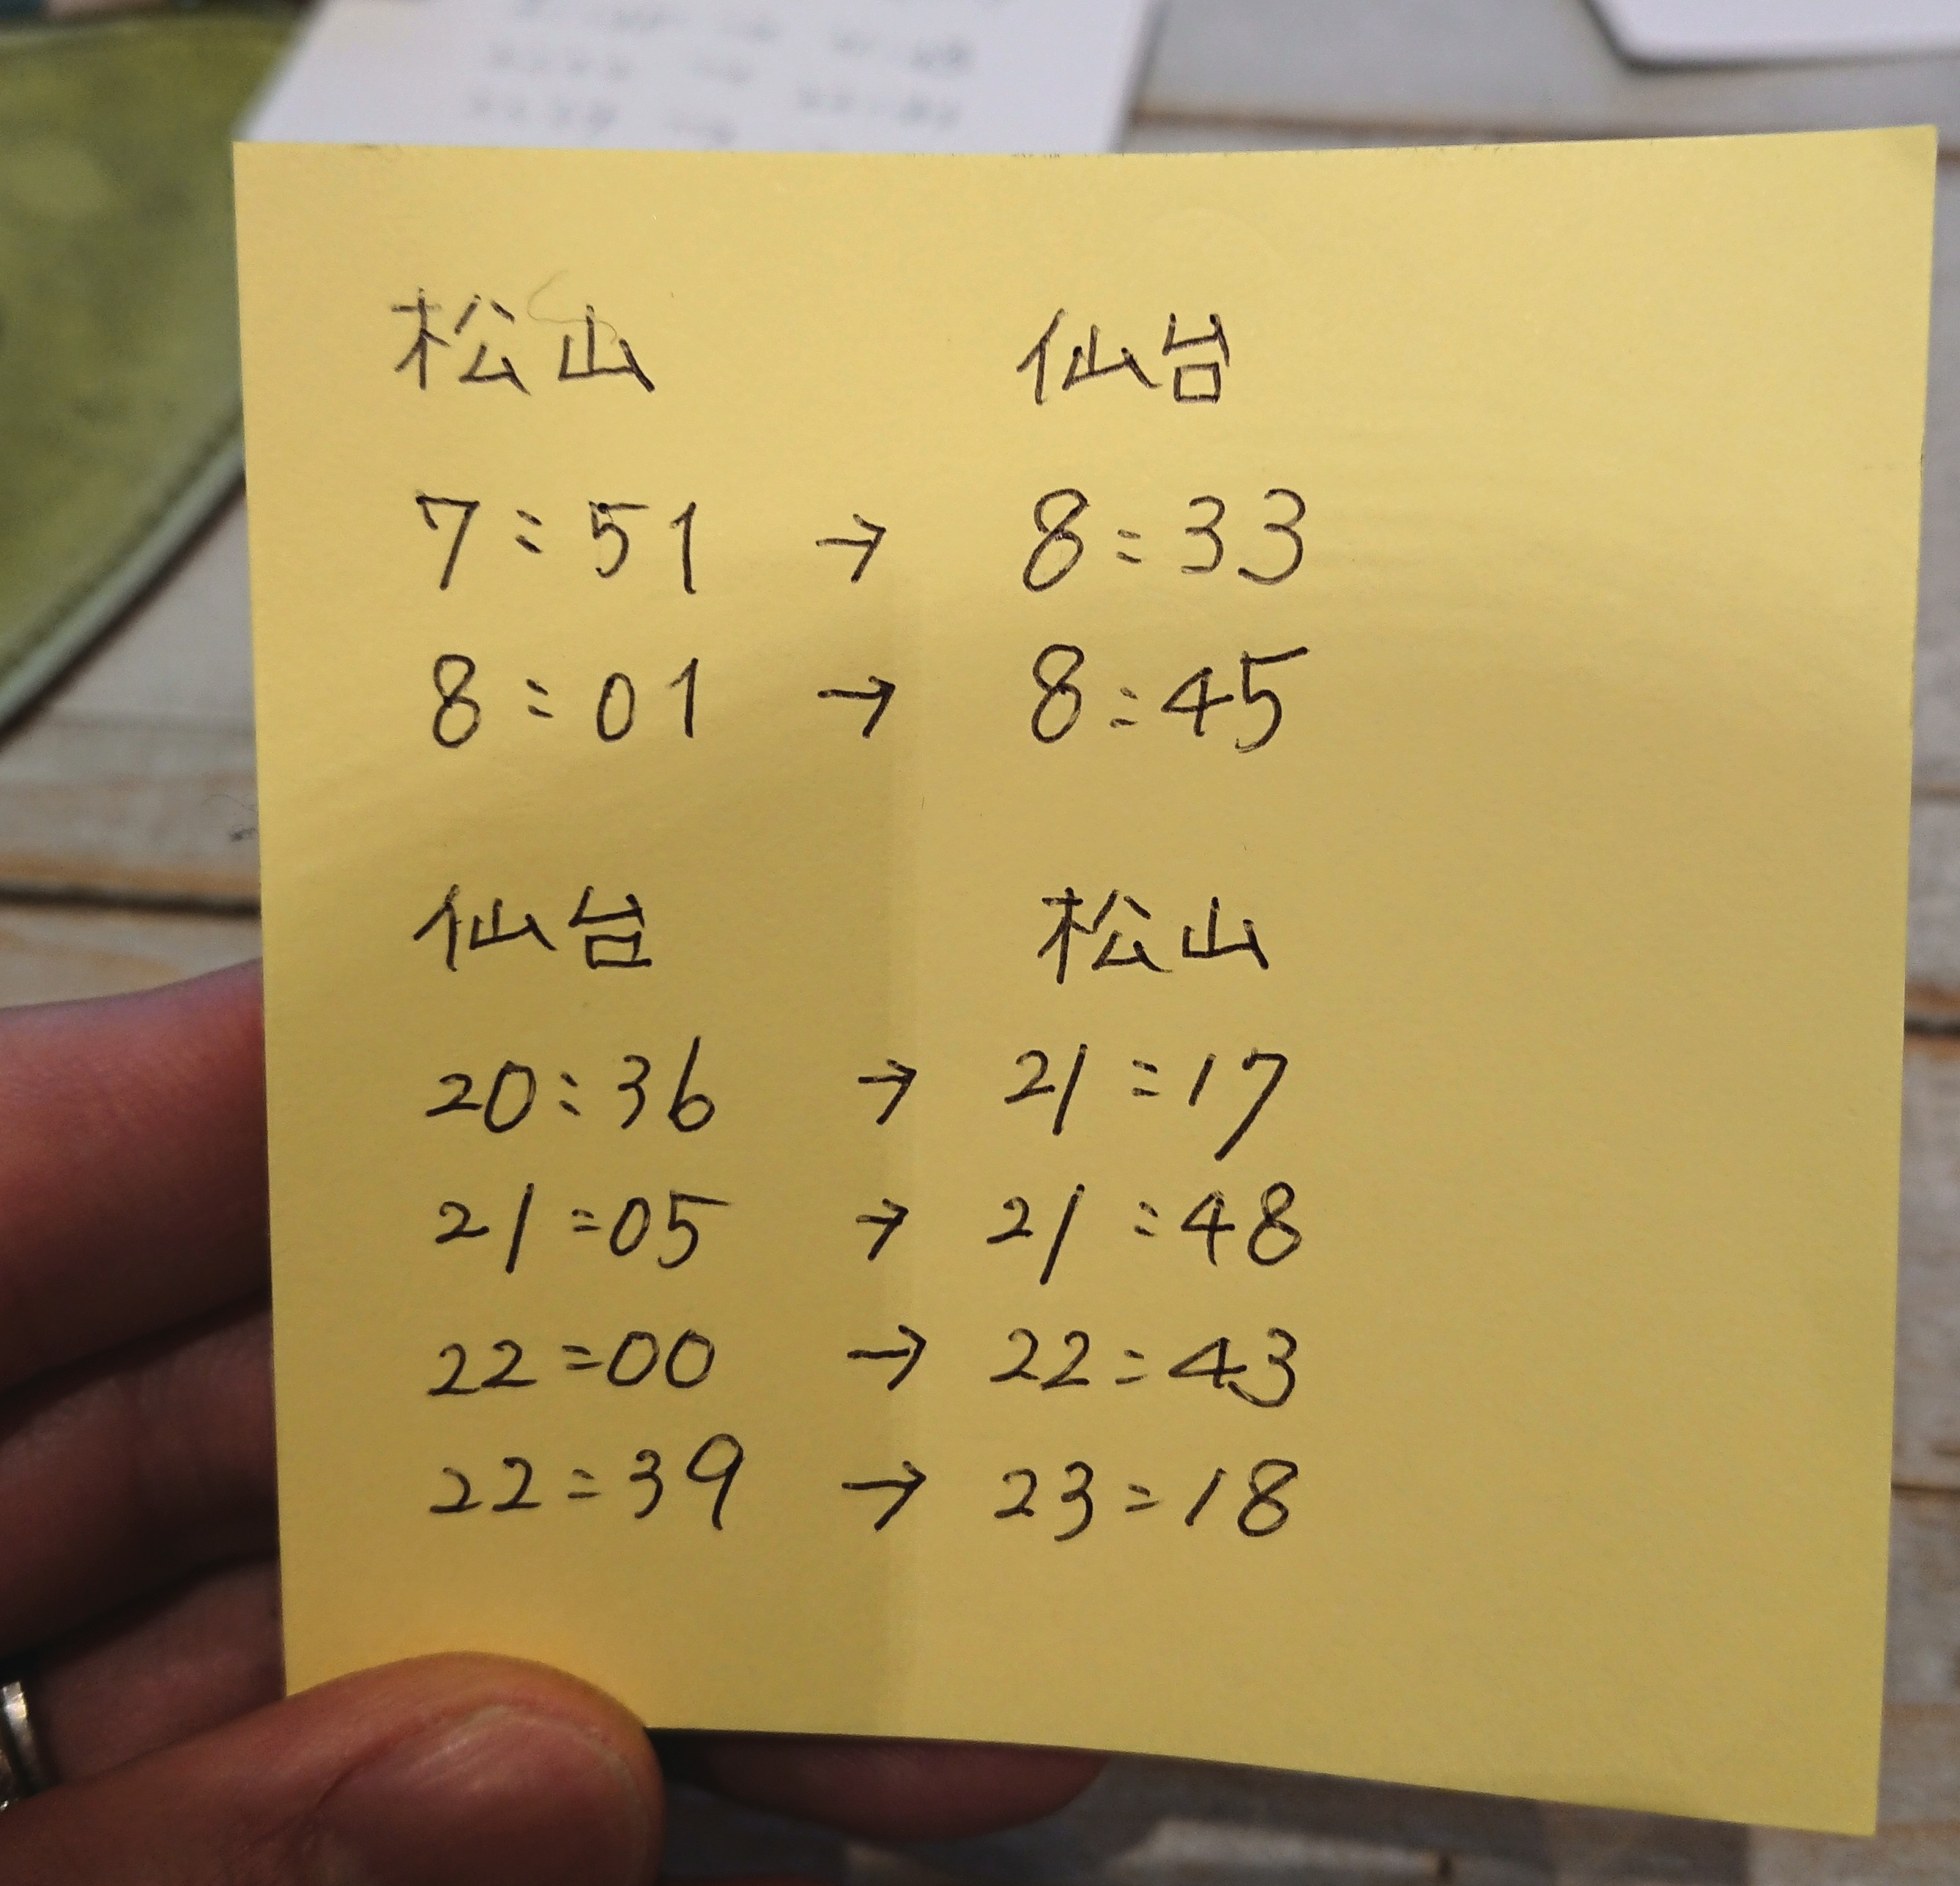 松山 仙台
7:51 → 8:33
8:01 → 8:45
仙台 松山
20:36 → 21:17
21:05 → 21:48
22:00 → 22:43
22:39 → 23:18